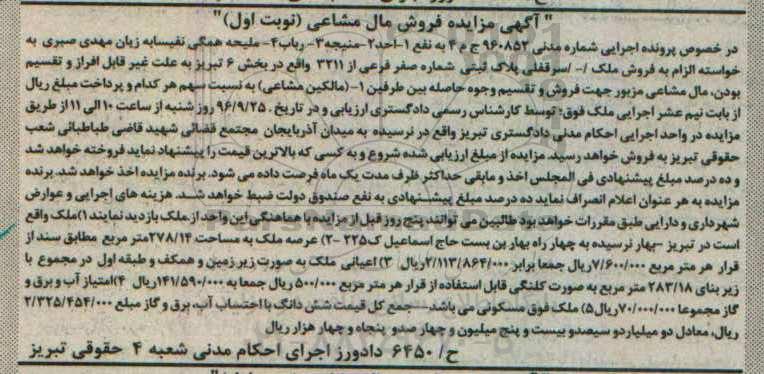 " آگهی مزایده فروش مال مشاعی (نوبت اول)"
در خصوص پرونده اجرایی شماره مدنی ۹۶۰۸۵۲ ج م ۴ به نفع ۱-احد۲-منیجه۳- رباب۴- ملیحه همگی نفیسابه زیان مهدی صبری به
خواسته الزام به فروش ملک /- /سرقفلی پلاک ثبتی شماره صفر فرعی از ۳۲۱۱ واقع در بخش ۶ تبریز به علت غیر قابل افراز و تقسیم
بودن، مال مشاعی مزبور جهت فروش و تقسیم وجوه حاصله بین طرفین ۱-(مالکین مشاعی) به نسبت سهم هر کدام و پرداخت مبلغ ریال
از بابت نیم عشر اجرایی ملک فوق: توسط کارشناس رسمی دادگستری ارزیابی و در تاریخ . ۹۶/۹/۲۵ روز شنبه از ساعت ۱۰ الی ۱۱ از طریق
مزایده در واحد اجرایی احکام مدنی دادگستری تبریز واقع در نرسیده به میدان آذربایجان مجتمع قضائی شهید قاضی طباطبائی شعب
حقوقی تبریز به فروش خواهد رسید. مزایده از مبلغ ارزیابی شده شروع و به کسی که بالاترین قیمت را پیشنهاد نماید فروخته خواهد شد
و ده درصد مبلغ پیشنهادی فی المجلس اخذ و مابقی حداکثر ظرف مدت یک ماه فرصت داده می شود. برنده مزایده اخذ خواهد شد. برنده
مزایده به هر عنوان اعلام انصراف نماید ده درصد مبلغ پیشنهادی به نفع صندوق دولت ضبط خواهد شد. هزینه های اجرایی و عوارض
شهرداری و دارایی طبق مقررات خواهد بود طالبین می توانند پنج روز قبل از مزایده با هماهنگی این واحد از ملک بازدید نمایند ۱)ملک واقع
است در تبریز -بهار نرسیده به چهار راه بهار بن بست حاج اسماعیل ک۲۲۵ -۲) عرصه ملک به مساحت ۲۷۸/۱۴متر مربع مطابق سند از
قرار هر متر مربع ۷/۶۰۰/۰۰۰ریال جمعا برابر ۲/۱۱۳/۸۶۴/۰۰۰ریال ۳) اعیانی ملک به صورت زیر زمین و همکف و طبقه اول در مجموع با
زیر بنای ۲۸۳/۱۸ متر مربع به صورت کلنگی قابل استفاده از قرار هر متر مربع ۵۰۰/۰۰۰ ریال جمعا به ۱۴۱/۵۹۰/۰۰۰ریال ۴)امتیاز آب و برق و
گاز مجموعا ۷۰/۰۰۰/۰۰۰ریال ۵) ملک فوق مسکونی می باشد—جمع کل قیمت شش دانگ با احتساب آب، برق و گاز مبلغ ۲/۳۲۵/۴۵۴/۰۰۰
ریال، معادل دو میلیارد و سیصدو بیست و پنج میلیون و چهار صدو پنجاه و چهار هزار ریال
ح/ ۶۴۵۰ دادورز اجرای احکام مدنی شعبه ۴ حقوقی تبریز